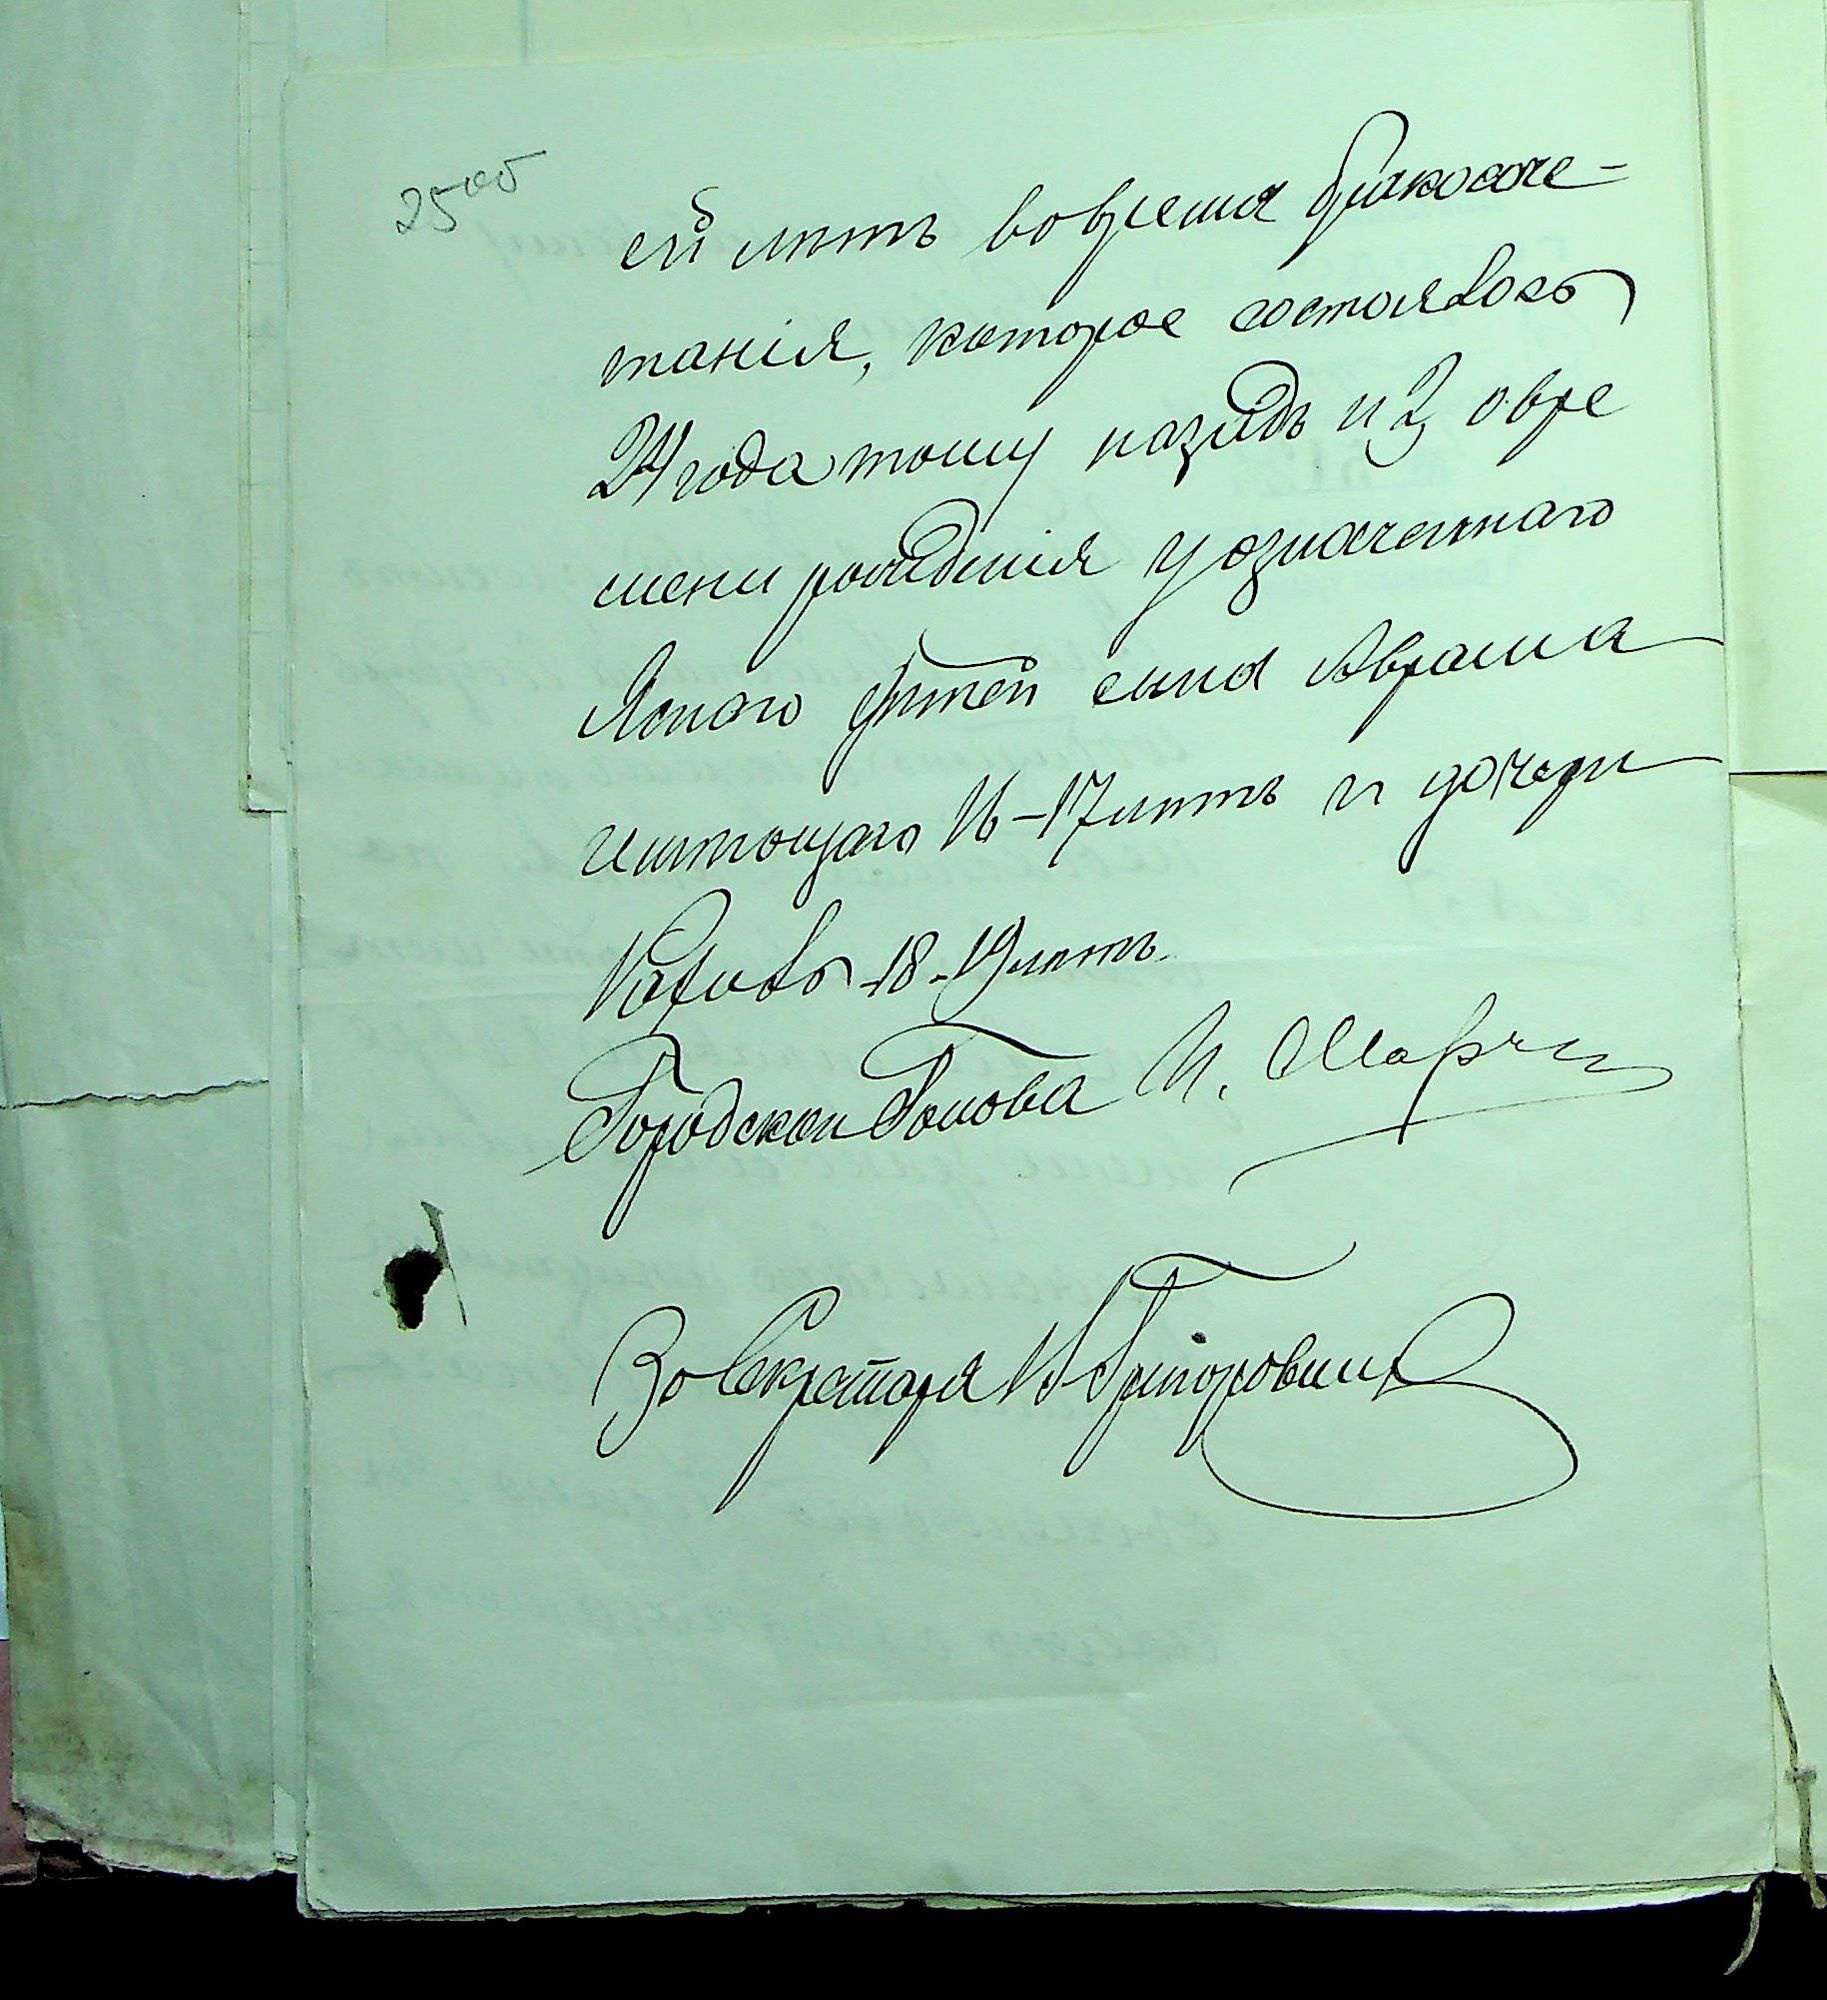 25 об
ей лѣтъ во время бракосоче-
танія, которое состоялось
24 года тому назадъ и 2) о вре
мени рожденія у означеннаго
Яснаго дѣтей сына Аврама
имѣющаго 16-17 лѣтъ и дочери
18-19 лѣтъ.
Городской Голова И.
За Секретаря Григоровичъ